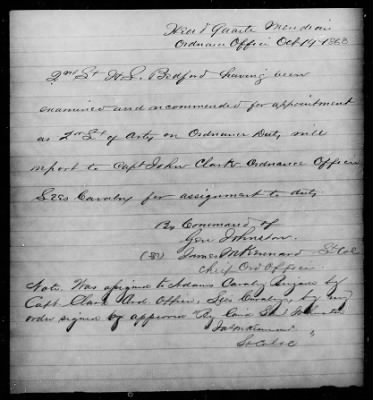 Head Quarters Meridian
Ordnance Office Oct 19 1863
2nd Lt H. L. Bedford having been
examined and recommended for appointment
as 2nd Lt of Arty on Ordnance Duty will
report to Capt John Clark Ordnance Officer
Lees Cavalry for assignment to duty
By Command of
Gen Johnston
James M Kennard Lt Col
Chief Ord Officer
Note. Was assigned to Adams Cavalry Brigade by
Capt Clark Ord. Officer, Lees Cavalry, by my
order signed by approved
Lt Col &c